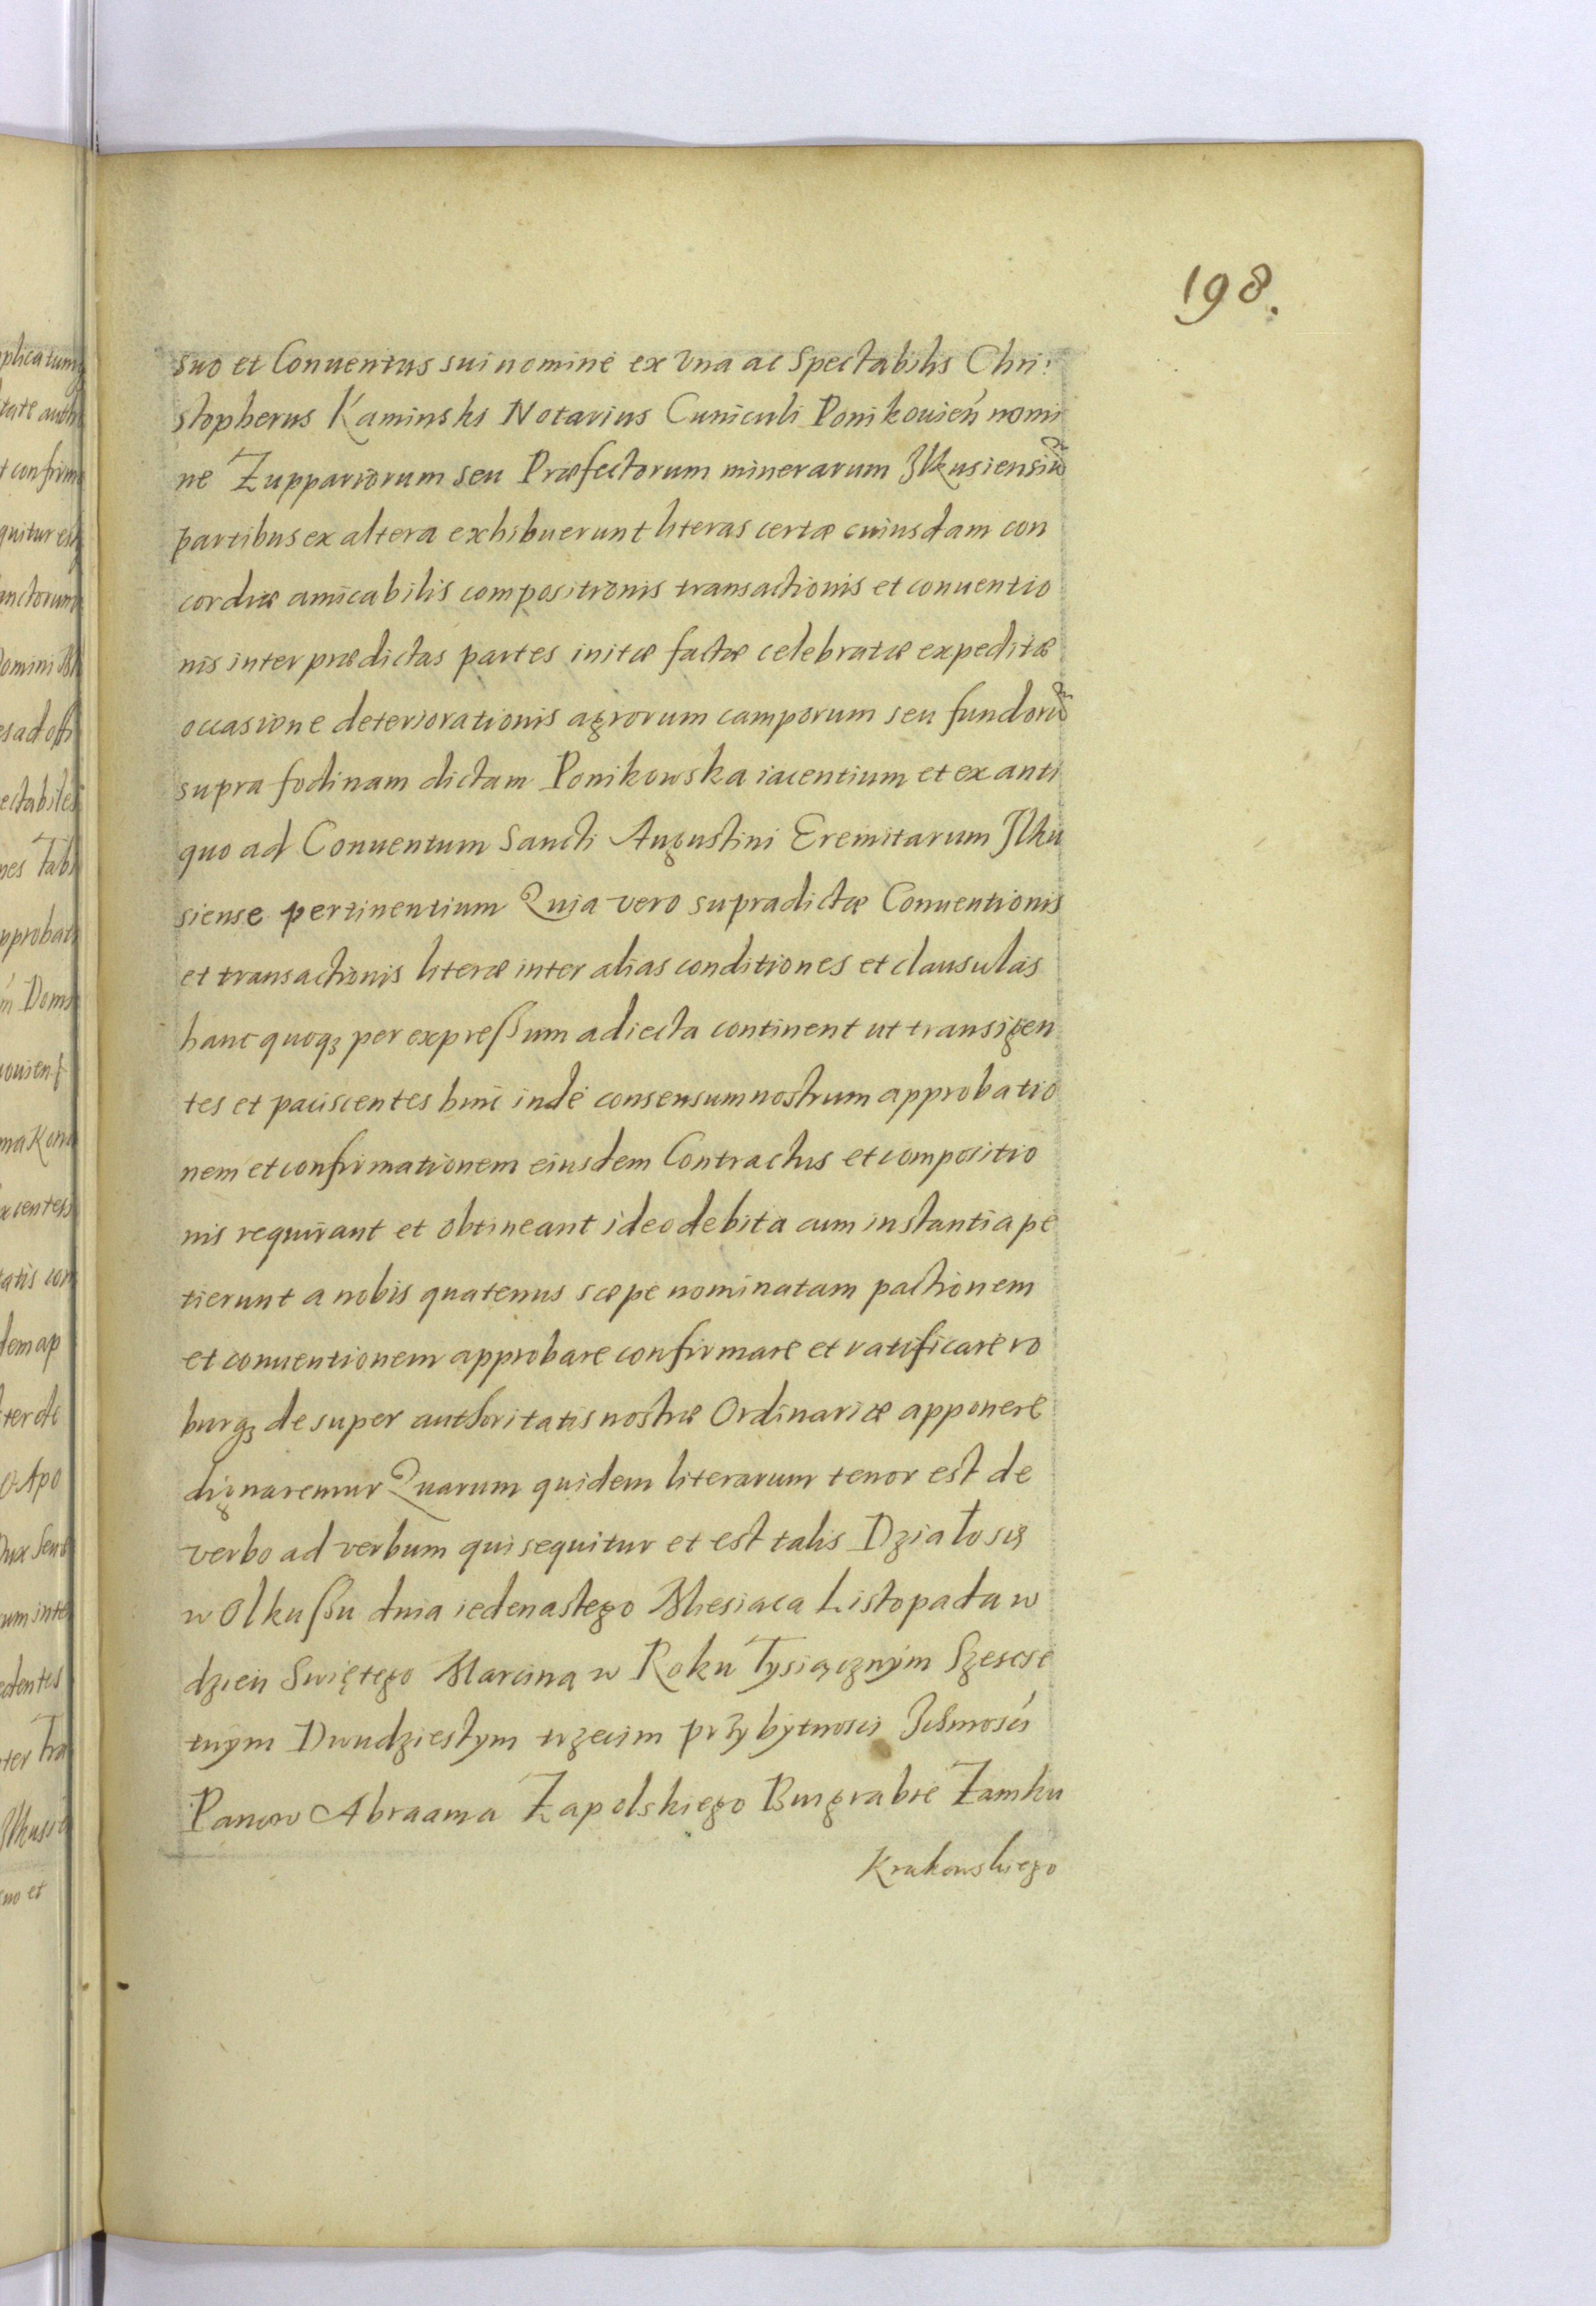 198.
suo et Conuentus sui nomine ex Vna ac Spectabilis Chri:
stopherus Kaminski Notarius Cuniculi Ponikouień nomi
ne Zuppariorum seu Præfectorum minerarum Ilkusiensiũ
partibus ex altera exhibuerunt literas certæ cuiusdam con
cordiæ amicabilis compositionis transactionis et conuentio
nis inter prædictas partes initæ factæ celebratæ expeditæ
occasione deteriorationis agrorum camporum seu fundorũ
supra fodinam dictam Ponikowska iacentium et ex anti
quo ad Conuentum Sancti Augustini Eremitarum Ilku
siense pertinentium Quia vero supradictæ Conuentionis
et transactionis literæ inter alias conditiones et clausulas
hanc quoqȝ per expreßum adiecta continent ut transigen
tes et paciscentes hinc inde consensum nostrum approbatio
nem et confirmationem eiusdem Contractus et compositio
nis requirant et obtineant ideo debita cum instantia pe
tierunt a nobis quatenus sæpe nominatam pactionem
et conuentionem approbare confirmare et ratificare ro
burqȝ desuper authoritatis nostræ Ordinariæ apponere
dignaremur Quarum quidem literarum tenor est de
verbo ad verbum qui sequitur et est talis Działo się
w Olkußu dnia iedenastego Miesiaca Listopada w
dzień Swiętego Marcina w Roku Tysiącznÿm Szescse
tnÿm Dwudziestym trzecim przÿ bÿtnosci Ichmosci
Panow Abraama Zapolskiego Burgrabie Zamku
Krakowskiego
plicatum
tate auth
t confirm
quitur es
anctorum
Domini
es ad offi
ectabiles
nes Tab
pprobat
Dom
ma Kon
centes
tatis con
dem ap
ter de
Apo
um inte
edentes
ter Tra
Ilkusi
suo et